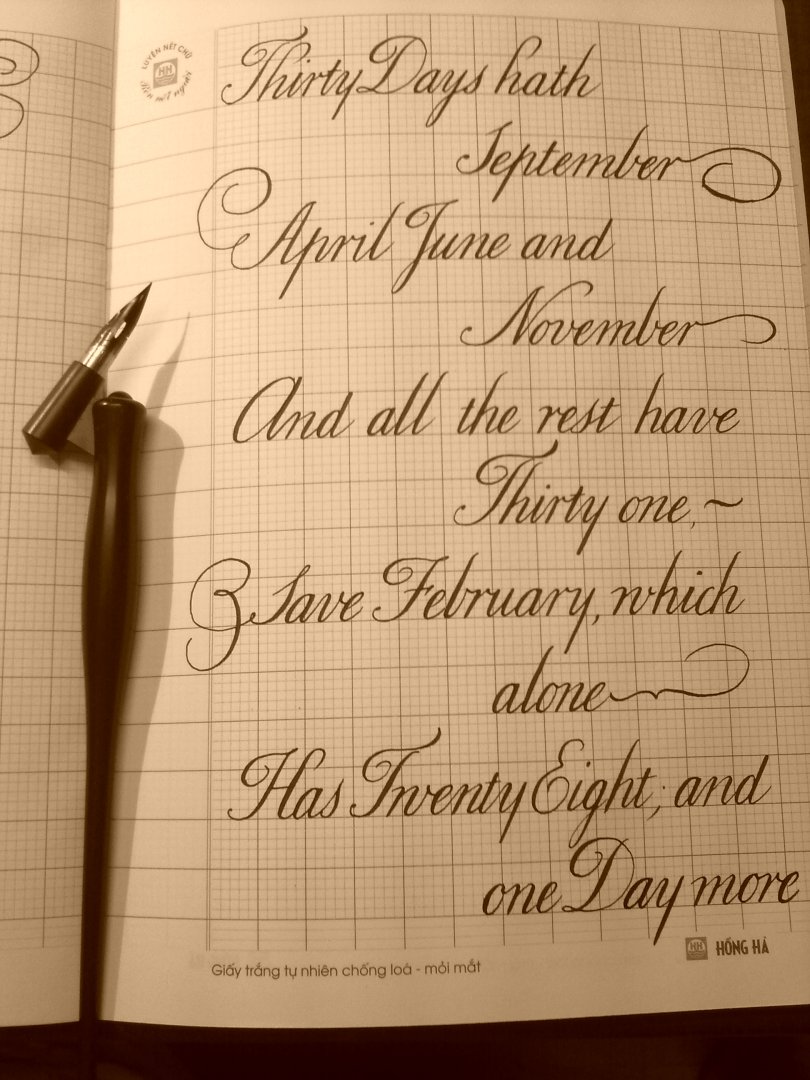 LUYỆN NÉT CHỮ
HH
Rèn nết người
Thirty Days hath
September
April June and
November
And all the rest have
Thirty one, ~
Save February, which
alone
Has Twenty Eight; and
one Day more
HH HỒNG HÀ
Giấy trắng tự nhiên chống loá - mỏi mắt